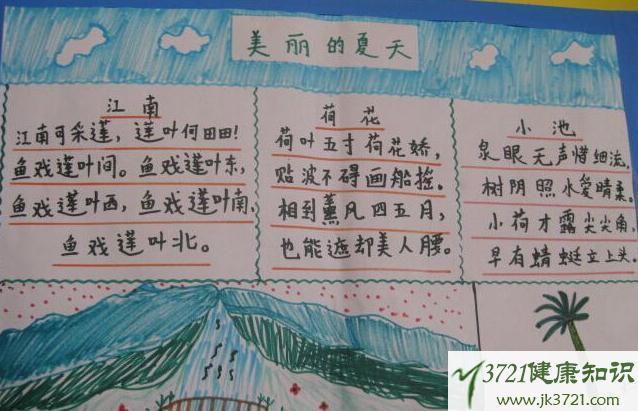 美丽的夏天
江南
江南可采莲，莲叶何田田！
鱼戏莲叶间。鱼戏莲叶东，
鱼戏莲叶西，鱼戏莲叶南，
鱼戏莲叶北。
荷花
荷叶五寸荷花娇，
贴波不碍画船摇。
相到薰风四五月，
也能遮却美人腰。
小池
泉眼无声惜细流，
树阴照水爱晴柔。
小荷才露尖尖角，
早有蜻蜓立上头。
3721健康知识
www.jk3721.com